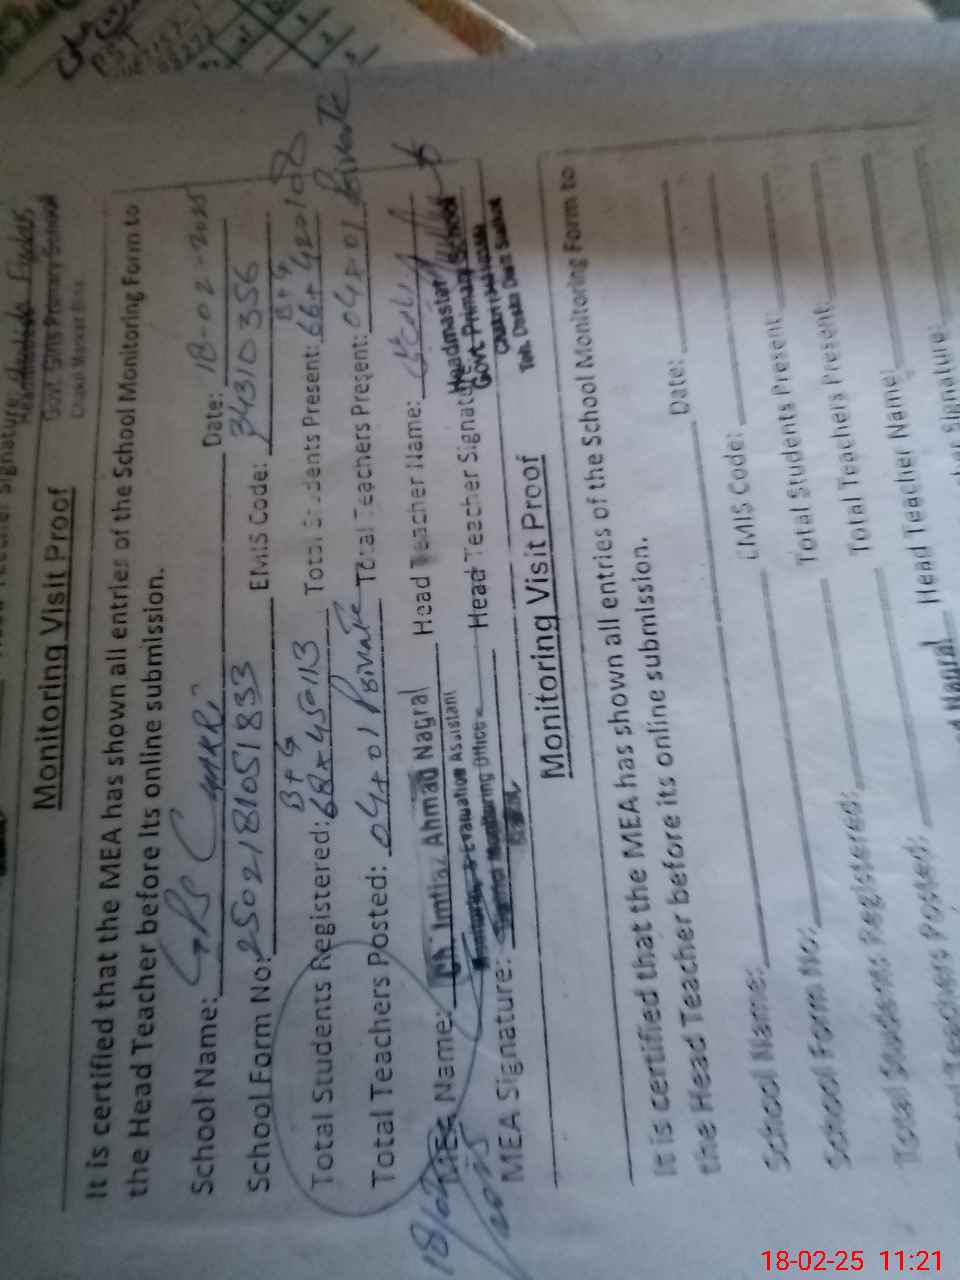 Govt. Gms Primary School
Monitoring Visit Proof
It is certified that the MEA has shown all entries of the School Monitoring Form to
the Head Teacher before its online submission.
School Name: GPS Date: 18-02-2025
School Form No: 2502181051833 EMIS Code: 34310356
B+G B+G
Total Students Registered: 68+45=113 Total Students Present: 66+42=108
Total Teachers Posted: 04+01 Private Total Teachers Present: 04+01 Private
MEA Name: Ch Imtiaz Ahmad Nagral Head Teacher Name:
Monitoring & Evaluation Assistant Headmaster
MEA Signature: District Monitoring Office Head Teacher Signature: Govt Primary School
Teh. Daska Distt Sialkot
Monitoring Visit Proof
It is certified that the MEA has shown all entries of the School Monitoring Form to
the Head Teacher before its online submission.
School Name: Date:
School Form No: EMIS Code:
Total Students Registered: Total Students Present:
Total Teachers Posted: Total Teachers Present:
Nagral Head Teacher Name:
Signature:
18-02-25 11:21